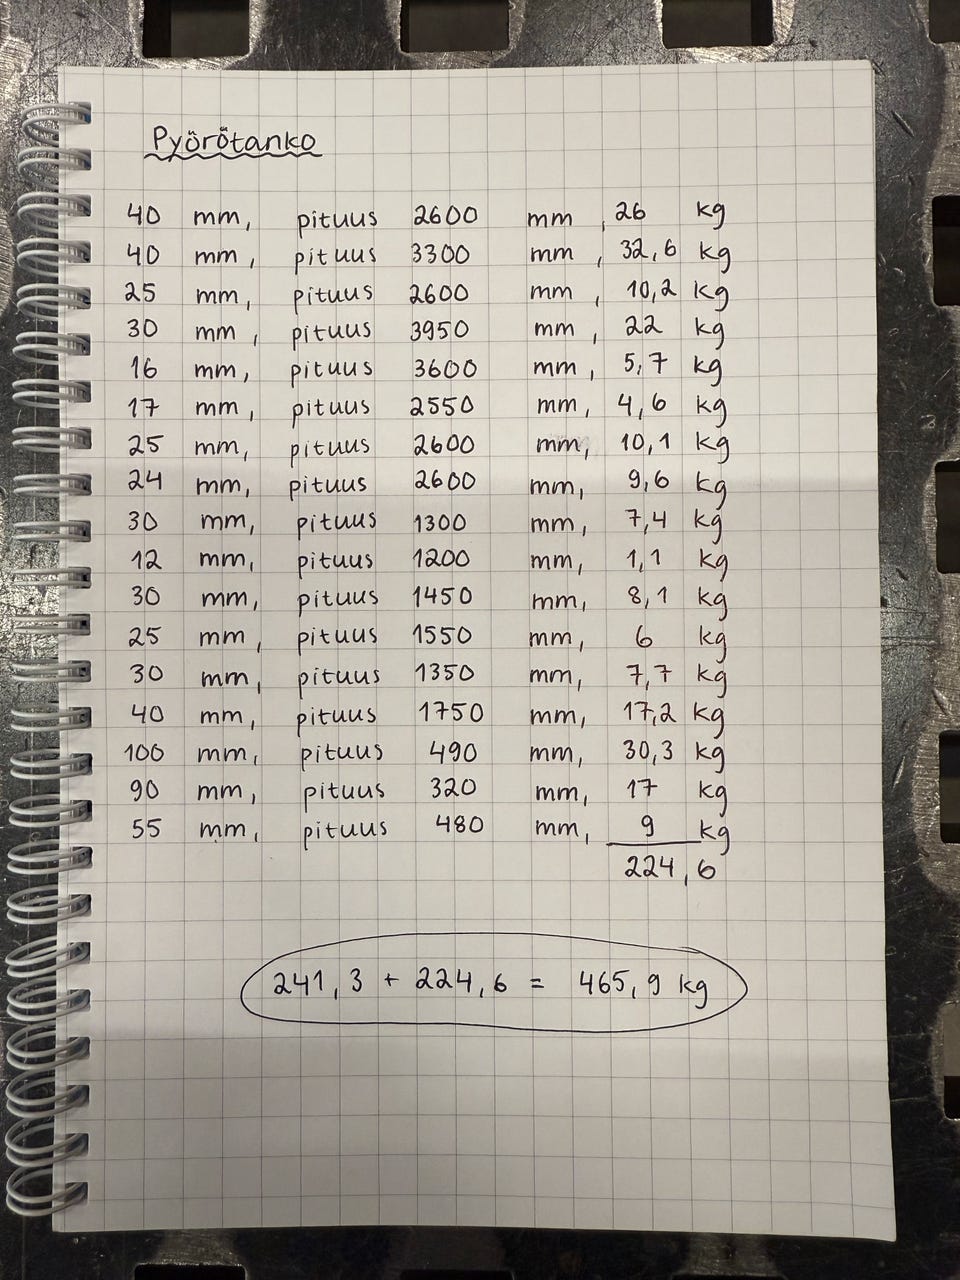 Pyörötanko
40 mm, pituus 2600 mm, 26 kg
40 mm, pituus 3300 mm, 32,6 kg
25 mm, pituus 2600 mm, 10,2 kg
30 mm, pituus 3950 mm, 22 kg
16 mm, pituus 3600 mm, 5,7 kg
17 mm, pituus 2550 mm, 4,6 kg
25 mm, pituus 2600 mm, 10,1 kg
24 mm, pituus 2600 mm, 9,6 kg
30 mm, pituus 1300 mm, 7,4 kg
12 mm, pituus 1200 mm, 1,1 kg
30 mm, pituus 1450 mm, 8,1 kg
25 mm, pituus 1550 mm, 6 kg
30 mm, pituus 1350 mm, 7,7 kg
40 mm, pituus 1750 mm, 17,2 kg
100 mm, pituus 490 mm, 30,3 kg
90 mm, pituus 320 mm, 17 kg
55 mm, pituus 480 mm, 9 kg
224,6
241,3 + 224,6 = 465,9 kg